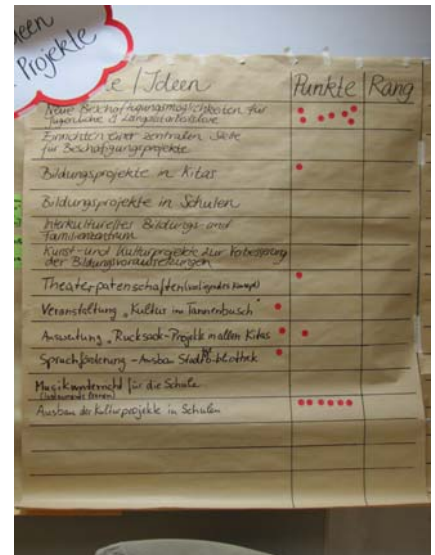 Ideen
Projekte
e / Ideen
Punkte
Rang
Neue Beschäftigungsmöglichkeiten für
Jugendliche & Langzeitarbeitslose
Einrichten einer zentralen Stelle
für Beschäftigungsprojekte
Bildungsprojekte in Kitas
Bildungsprojekte in Schulen
Interkulturelles Bildungs- und
Familienzentrum
Kunst- und Kulturprojekte zur Verbesserung
der Bildungsvoraussetzungen
Theaterpatenschaften (vorliegendes Konzept)
Veranstaltung „Kultur im Tannenbusch"
Ausweitung „Rucksack-Projekte in allen Kitas
Sprachförderung - Ausbau Stadtbibliothek
Musikunterricht für die Schule
Ausbau der Kulturprojekte in Schulen